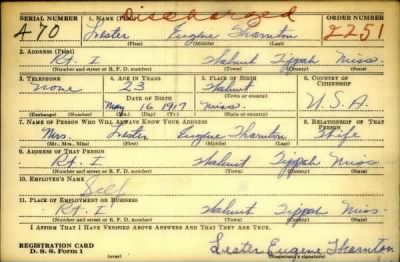 Discharged
SERIAL NUMBER 1. NAME (Print) ORDER NUMBER
A70 Lester Eugene Thornton 2251
(First) (Middle) (Last)
2. ADDRESS (Print)
Rt. I Walnut Tippah Miss.
(Number and street or R. F. D. number) (Town) (County) (State)
3. TELEPHONE 4. AGE IN YEARS 5. PLACE OF BIRTH 6. COUNTRY OF CITIZENSHIP
none 23 Walnut
DATE OF BIRTH (Town or county)
May 16 1917 Miss. U.S.A.
(Exchange) (Number) (Mo.) (Day) (Yr.) (State or country)
7. NAME OF PERSON WHO WILL ALWAYS KNOW YOUR ADDRESS 8. RELATIONSHIP OF THAT PERSON
Mrs. Lester Eugene Thornton Wife
(Mr., Mrs., Miss) (First) (Middle) (Last)
9. ADDRESS OF THAT PERSON
Rt. I Walnut Tippah Miss
(Number and street or R. F. D. number) (Town) (County) (State)
10. EMPLOYER'S NAME
Self
11. PLACE OF EMPLOYMENT OR BUSINESS
Rt. I Walnut Tippah Miss.
(Number and street or R. F. D. number) (Town) (County) (State)
I AFFIRM THAT I HAVE VERIFIED ABOVE ANSWERS AND THAT THEY ARE TRUE.
REGISTRATION CARD
D. S. S. Form 1 Lester Eugene Thornton
(over) (Registrant's signature)